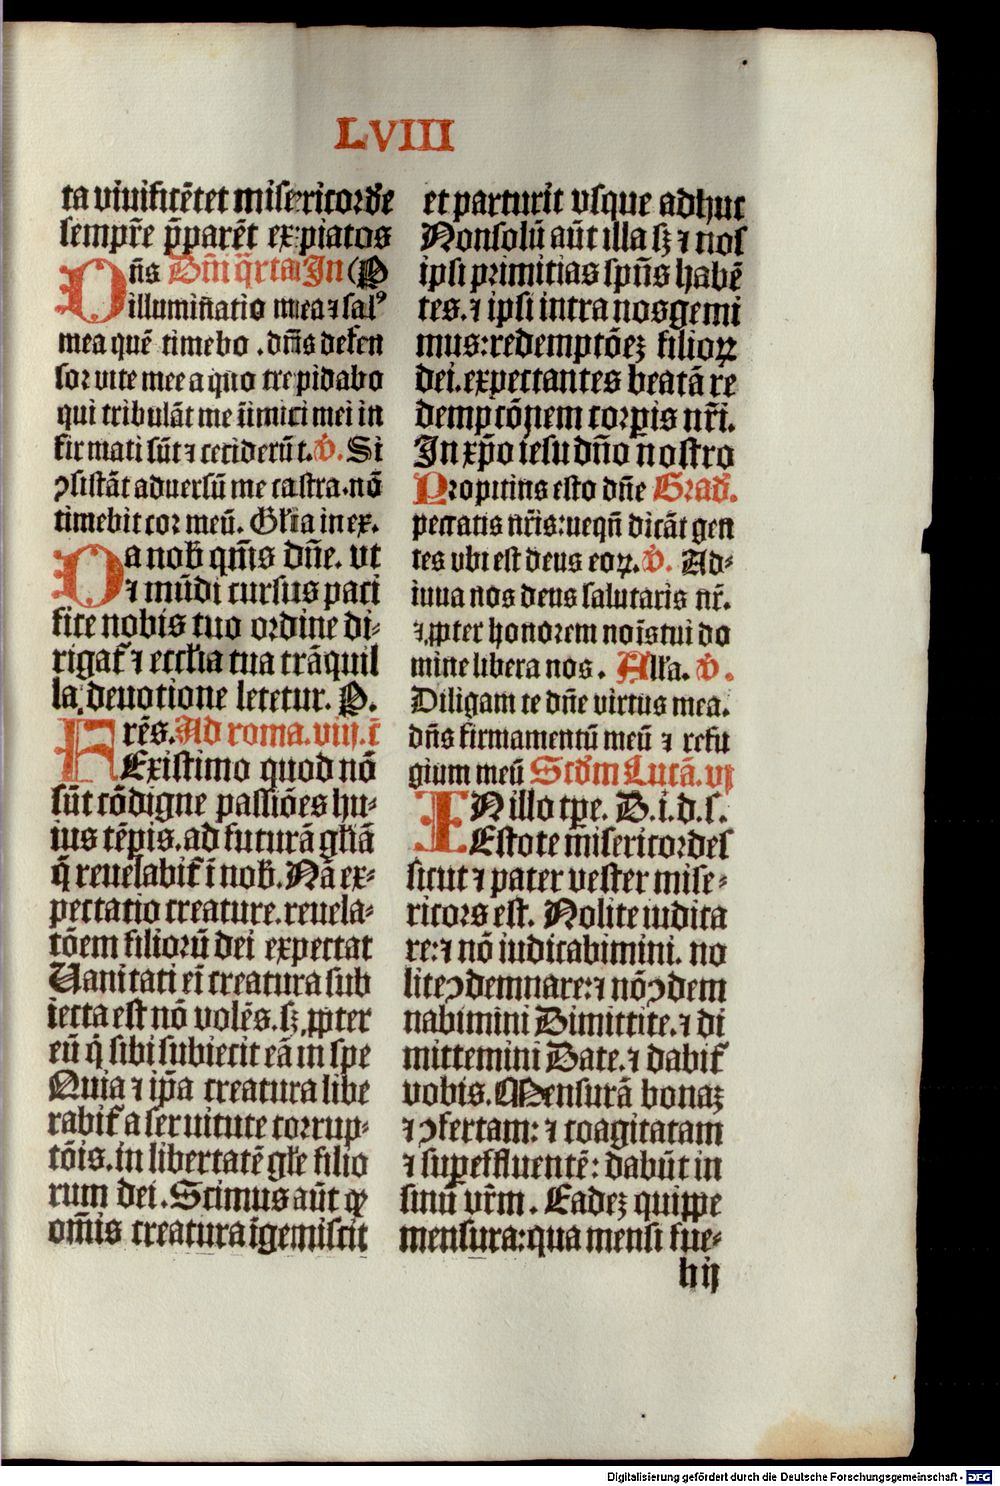 LVIII
ta viuificētet misericordie
sempr̄e p̄parēt expiatos
Dn̄s Dm̄i q̄rta In (P
illumin̄atio mea ⁊ salꝰ
mea quē timebo . dn̄s defen
sor uite mee a quo trepidabo
qui tribulāt me īimici mei in
firmati sūt ⁊ ceciderūt. v̄. Si
ↄsistāt aduersū me castra. nō
timebit cor meū. Gl̄ia in ex.
Da nob̄ qm̄s dn̄e. vt
⁊ mūdi cursus paci
fice nobis tuo ordine di-
rigat̄ ⁊ eccl̄ia tua trāquil
la deuotione letetur. P.
Frēs. Ad roma. viij. c̄
Existimo quod nō
sūt cōdigne passiōes hu-
ius tēpis. ad futurā gl̄iā
q̄ reuelabit̄ ī nob̄. Nā ex-
pectatio creature. reuela-
tōem filiorū dei expectat
Vanitati ei̅ creatura sub
iecta est nō volēs. sꝫ ꝓpter
eū q̄ sibi subiecit eā in spe
Quia ⁊ ip̄a creatura libe
rabit̄ a seruitute corrup-
tōis. in libertatē gl̄e filio
rum dei. Scimus aūt ꝙ
om̄is creatura īgemiscit
et parturit vsque adhuc
Nonsolū aūt illa sꝫ ⁊ nos
ipsi primitias spn̄s habē
tes. ⁊ ipsi intra nos gemi
mus: redemptōeꝫ filioꝝ
dei. expectantes beatā re
demptōnem corpis nr̄i.
In xp̄o iesu dn̄o nostro
Propitius esto dn̄e Grad̄.
peccatis nr̄is: ueqn̄ dicāt gen
tes vbi est deus eoꝝ. v̄. Ad-
iuua nos deus salutaris nr̄.
⁊ ꝓpter honorem noīs tui do
mine libera nos. All̄a. v̄.
Diligam te dn̄e virtus mea.
dn̄s firmamentū meū ⁊ refu
gium meū Scd̄m Lucā. vj
IN illo tp̄e. D. i. d. s.
Estote misericordes
sicut ⁊ pater vester mise-
ricors est. Nolite iudica
re: ⁊ nō iudicabimini. no
lite ↄdemnare: ⁊ nō ↄdem
nabimini Dimittite. ⁊ di
mittemini Date. ⁊ dabit̄
vobis. Mensurā bonaꝫ
⁊ ↄfertam: ⁊ coagitatam
⁊ supeffluentē: dabūt in
sinū vr̄m. Eadeꝫ quippe
mensura: qua mensi fue-
hij
Digitalisierung gefördert durch die Deutsche Forschungsgemeinschaft - DFG